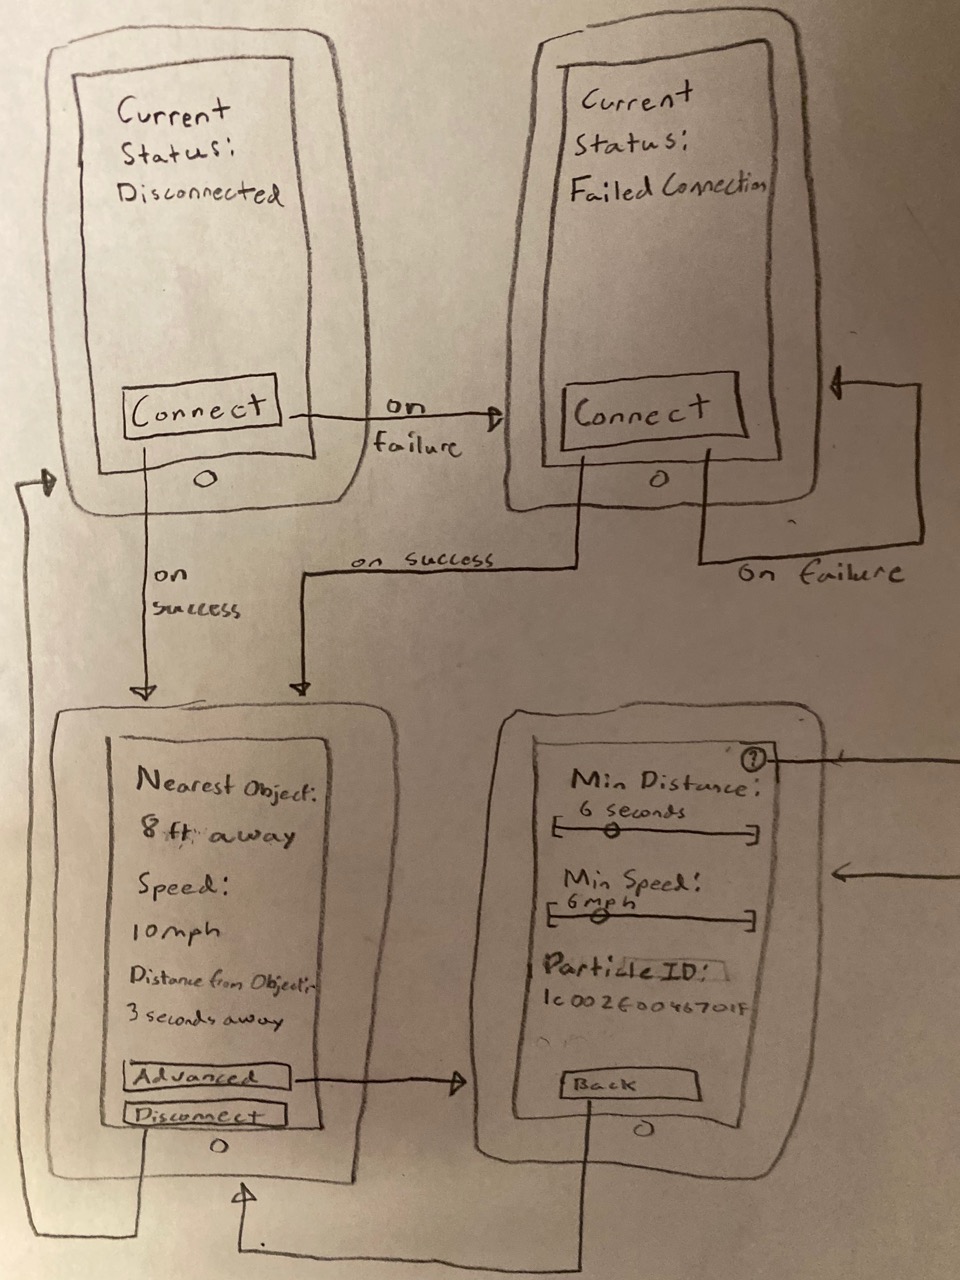 Current
Status:
Disconnected
Connect
on
failure
Current
Status:
Failed Connection
Connect
on
success
on success
on failure
Nearest Object:
8 ft away
Speed:
10mph
Distance from Object:
3 seconds away
Advanced
Disconnect
?
Min Distance:
6 seconds
Min Speed:
6mph
Particle ID:
Back